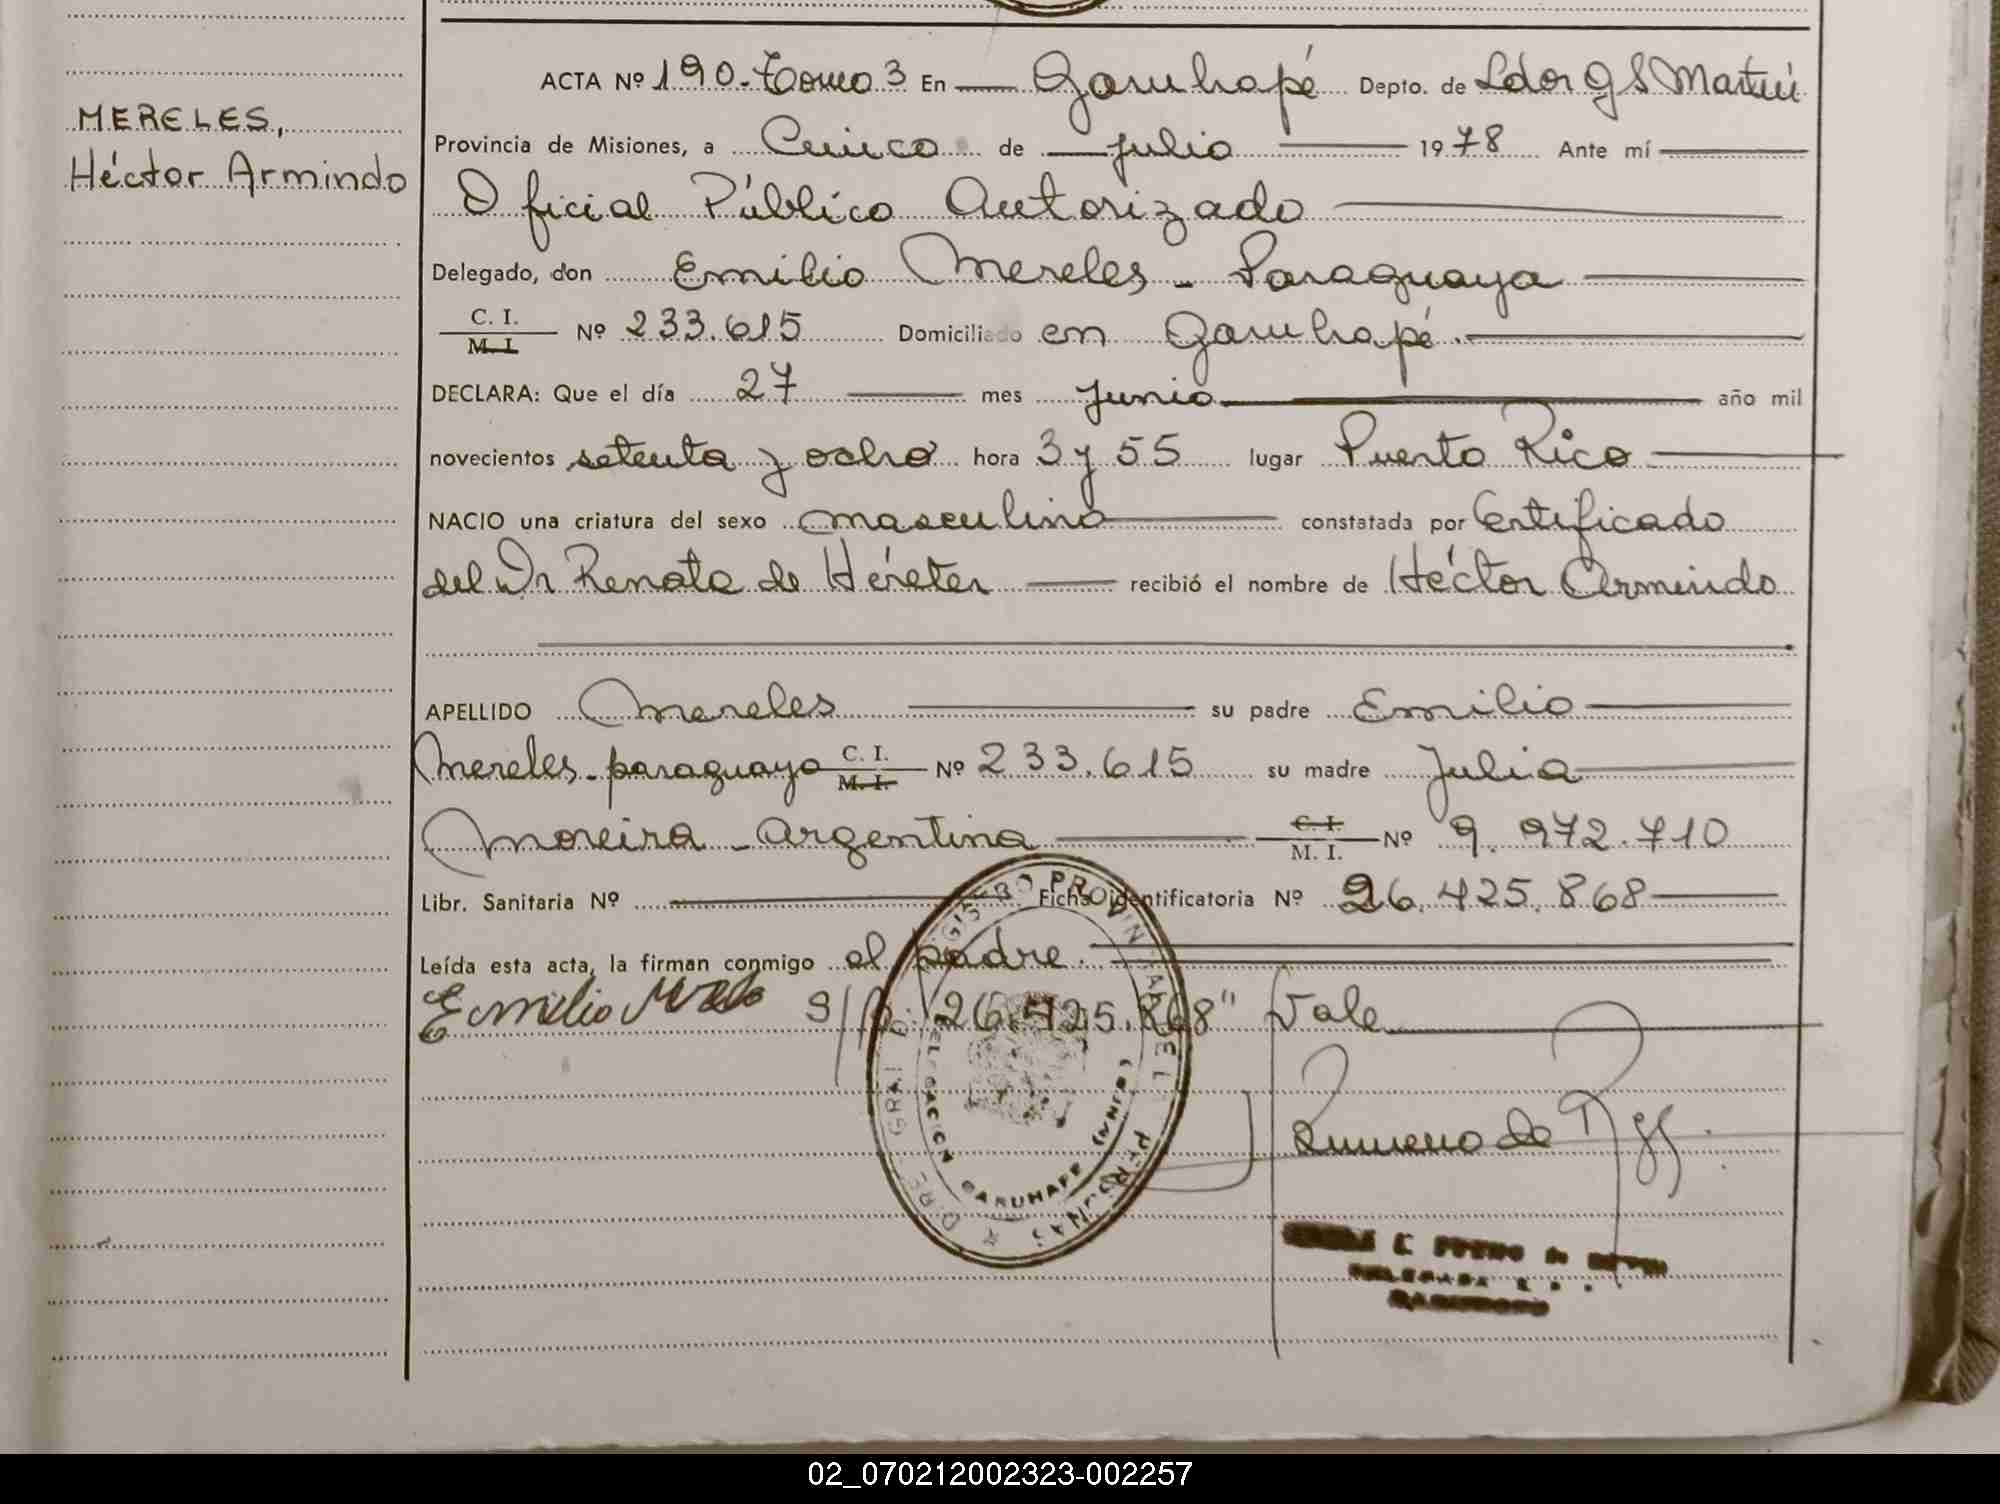 ACTA Nº 190. Tomo 3 En Garuhapé Depto. de Ldor G S Martín
MERELES,
Provincia de Misiones, a Cinco de julio 1978 Ante mí
Héctor Armindo
Oficial Público Autorizado
Delegado, don Emilio Mereles - Paraguaya
C. I.
M. I. Nº 233.615 Domiciliado en Garuhapé.
DECLARA: Que el día 27 mes junio año mil
novecientos setenta y ocho hora 3 y 55 lugar Puerto Rico
NACIO una criatura del sexo masculino constatada por Certificado
del Dr Renato de Héreter recibió el nombre de Héctor Armindo
APELLIDO Mereles su padre Emilio
Mereles - paraguayo C. I.
M. I. Nº 233.615 su madre Julia
Moreira - argentina C. I.
M. I. Nº 9.972.710
Libr. Sanitaria Nº Ficha identificatoria Nº 26.425.868
Leída esta acta, la firman conmigo el padre.
Emilio S/R: "26.425.868" Vale
REGISTRO PROVINCIAL DE LAS PERSONAS
DELEGACION GARUHAPE (MNES)
02_070212002323-002257